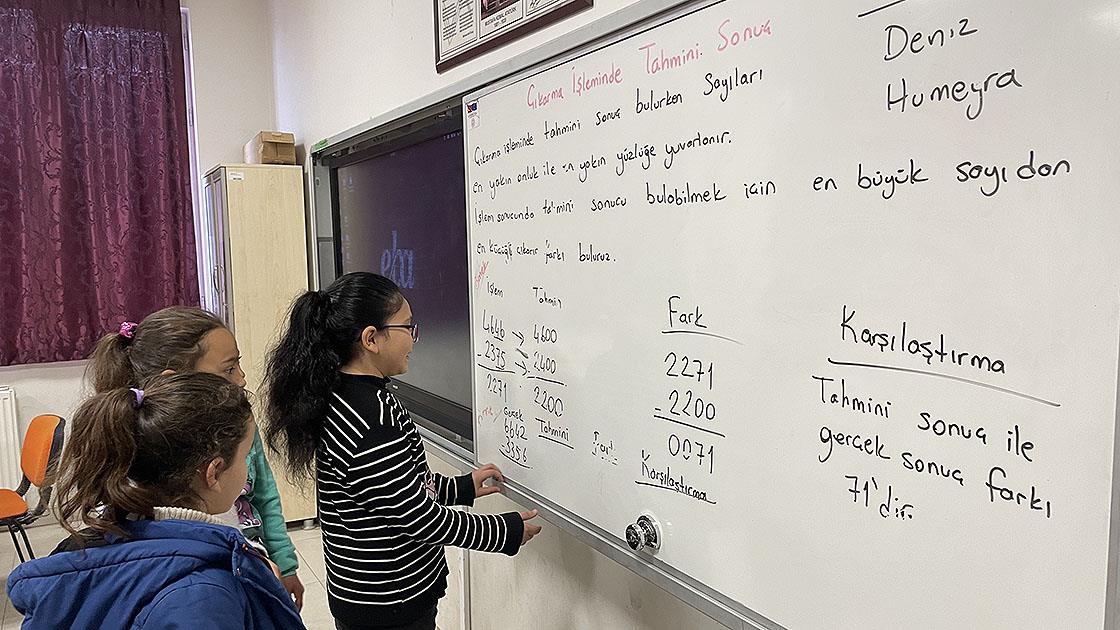 MUSTAFA KEMAL ATATÜRK
eba
Çıkarma İşleminde Tahmini Sonuç
Çıkarma işleminde tahmini sonuç bulurken sayıları
en yakın onluk ile en yakın yüzlüğe yuvarlanır.
İşlem sonucunda tahmini sonucu bulabilmek için en büyük sayıdan
en küçüğü çıkarır farkı buluruz.
Deniz
Humeyra
Örnek
İşlem Tahmin
4646 → 4600
- 2375 → 2400
2271 2200
Gerçek Tahmini
6642
3356
Fark
2271
- 2200
0071
Karşılaştırma
Karşılaştırma
Tahmini sonuç ile
gerçek sonuç farkı
71'dir.